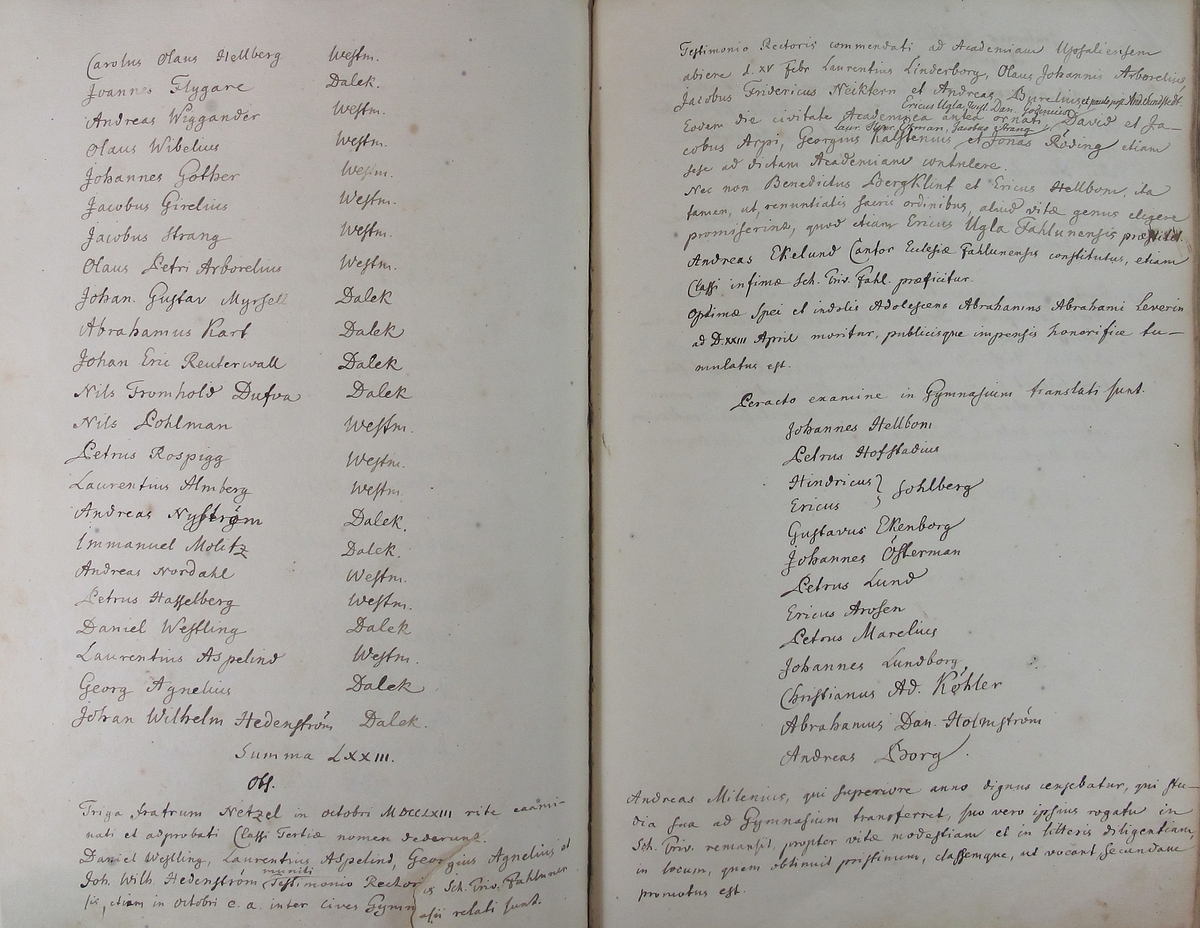 Carolus Olaus Hellberg Westm.
Joannes Flygare Dalek.
Andreas Wiggander Westm.
Olaus Wibelius Westm.
Johannes Göther Westm.
Jacobus Girelius Westm.
Jacobus Strang Westm.
Olaus Petri Arborelius Westm.
Johan. Gustav Myrsell Dalek
Abrahamus Kart Dalek
Johan Eric Reuterwall Dalek
Nils Fromhold Dufva Dalek
Nils Pohlman Westm.
Petrus Rospigg Westm.
Laurentius Almberg Westm.
Andreas Nyström Dalek.
Immanuel Molitz Dalek.
Andreas Nordahl Westm.
Petrus Hasselberg Westm.
Daniel Westling Dalek
Laurentius Aspelind Westm.
Georg Agnelius Dalek
Johan Wilhelm Hedenström Dalek.
Summa LXXIII.
Obs.
Triga fratrum Netzel in octobri MDCCLXIII rite exami-
nati et adprobati Classi Tertiæ nomen dederunt.
Daniel Westling, Laurentius Aspelind, Georgius Agnelius et
muniti
Joh. Wilh. Hedenström Testimonio Rectoris Sch. Triv. Fahlunen
sis, etiam in octobri e. a. inter cives Gymnasii relati sunt.
Testimonio Rectoris commendati ad Academiam Upsaliensem
abiere d. XV Febr Laurentius Linderborg, Olaus Johannis Arborelius,
Jacobus Fridericus Neiktern et Andreas Burelius, et paulo post And.
Ericus Ugla, Dan.
Eodem die civitate Academica antea ornati David et Ja-
Laur. Jacobus Strang
cobus Arpi, Georgius Kalstenius et Jonas Röding etiam
sese ad dictam Academiam contulere.
Nec non Benedictus Bergklint et Ericus Hellbom, ita
tamen, ut, renuntiatis sacris ordinibus, aliud vitæ genus eligere
promiserint, quod etiam Ericus Ugla Fahlunensis præstitit.
Andreas Ekelund Cantor Ecclesiæ Fahlunensis constitutus, etiam
Classi infimæ Sch. Triv. Fahl. præficitur.
Optimæ spei et indolis Adolescens Abrahamus Abrahami Leverin
ad D. XXIII April moritur, publicisque impensis honorifice tu-
mulatus est.
Peracto examine in Gymnasium translati sunt.
Johannes Hellbom
Petrus Hofstadius
Hindricus } Sohlberg
Ericus
Gustavus Ekenborg
Johannes Österman
Petrus Lund
Ericus Arosen
Petrus Marelius
Johannes Lundborg
Christianus Ad. Köhler
Abrahamus Dan. Holmström
Andreas Borg.
Andreas Milenius, qui superiore anno dignus censebatur, qui stu-
dia sua ad Gymnasium transferret, suo vero ipsius rogatu in
Sch. Triv. remansit, propter vitæ modestiam et in litteris diligentiam,
in locum, quem obtinuit pristinum, classemque, ut vocant, secundam
promotus est.